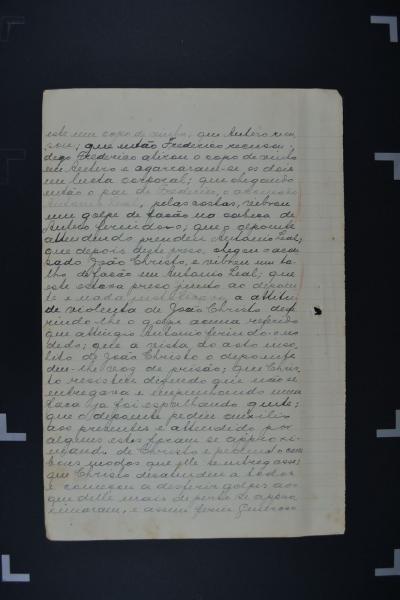 este um copo de vinho, que Antero recu
sou; que então Frederico recusou;
digo Frederico atirou o copo de vinho
em Antero e agarraram-se os dois
em lucta corporal; que chegando
então o pae de Frederico, o accusado
Antonio Leal, pelas costas, vibrou
um golpe de facão na cabeça de
Antero ferindo-o; que o depoente
attendendo prendeu Antonio Leal;
que depois deste preso, chegou o accu
sado João Christo, e vibrou um ta
lho de facão em Antonio Leal; que
este estava preso junto ao depoen
te e nada a attitu
de violenta de João Christo defe
rindo-lhe o golpe acima referido
que attingio Antonio ferindo-o no
dedo; que a vista do acto inso
lito de João Christo o depoente
deu-lhe voz de prisão; que Chris
to resistiu dizendo que não se
entregava e empunhando uma
faca ja foi espalhando gente;
que o depoente pediu auxilio
aos presentes e attendido por
alguns estes foram se approxi
mando de Christo e pedindo com
bons modos que elle se entregasse;
que Christo desattendeu a todos
e começou a desferir golpes aos
que delle mais de perto se approxi
maram, e assim feriu Generoso